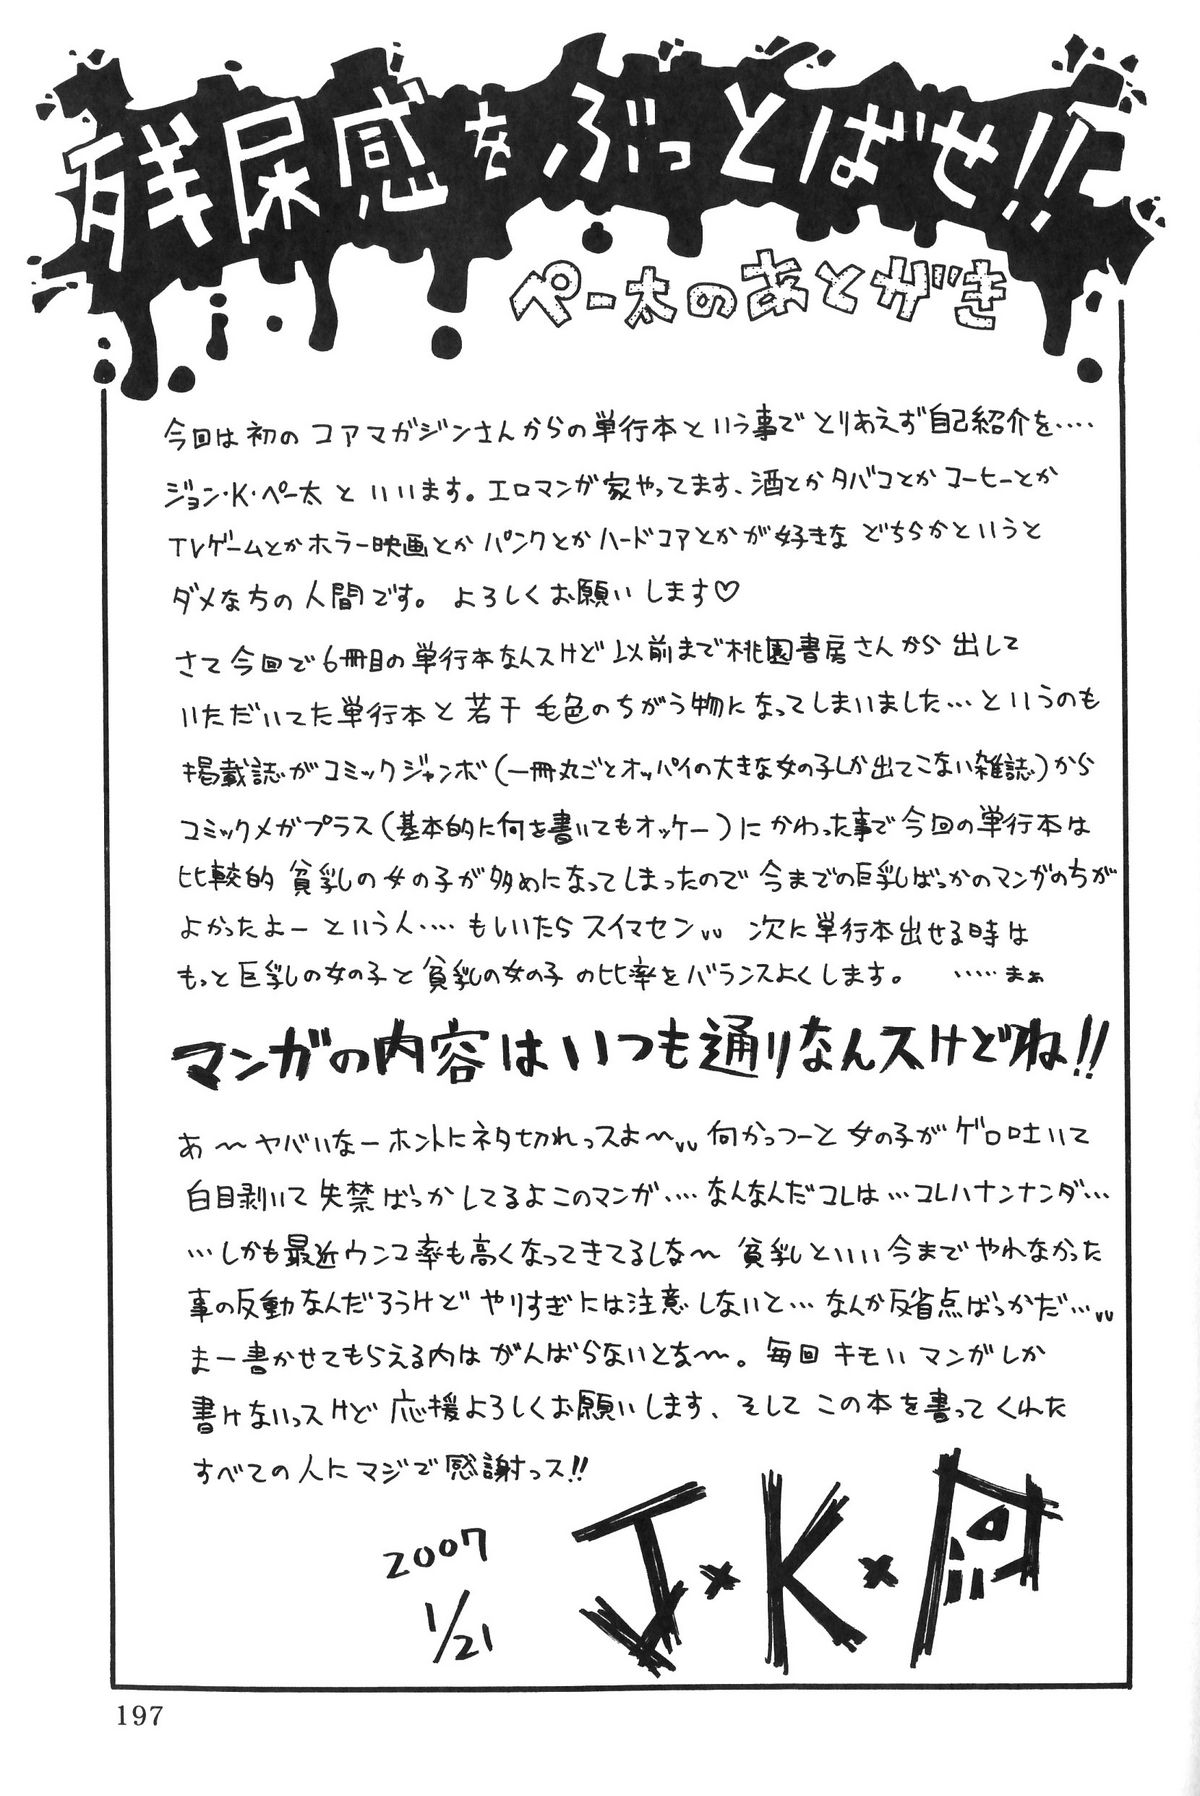 残尿感をぶっとばせ!!
ペー太のあとがき
今回は初のコアマガジンさんからの単行本という事でとりあえず自己紹介を‥‥
ジョン・K・ペー太といいます。エロマンガ家やってます、酒とかタバコとかコーヒーとか
TVゲームとかホラー映画とかパンクとかハードコアとかが好きなどちらかというと
ダメなちの人間です。よろしくお願いします♡
さて今回で6冊目の単行本なんスけど以前まで桃園書房さんから出して
いただいてた単行本と若干毛色のちがう物になってしまいました…というのも
掲載誌がコミックジャンボ(一冊丸ごとオッパイの大きな女の子しか出てこない雑誌)から
コミックメガプラス(基本的に何を書いてもオッケー)にかわった事で今回の単行本は
比較的貧乳の女の子が多めになってしまったので今までの巨乳ばっかのマンガのちが
よかったよーという人‥‥もしいたらスイマセン〃 次に単行本出せる時は
もっと巨乳の女の子と貧乳の女の子の比率をバランスよくします。 ‥‥‥まぁ
マンガの内容はいつも通りなんスけどね!!
あ〜ヤバいなーホントにネタ切れっスよ〜〃何かっつーと女の子がゲロ吐いて
白目剥いて失禁ばっかしてるよこのマンガ‥‥なんなんだコレは…コレハナンナンダ…
…しかも最近ウンコ率も高くなってきてるしな〜貧乳といい今までやれなかった
事の反動なんだろうけどやりすぎには注意しないと…なんか反省点ばっかだ…〃
まー書かせてもらえる内はがんばらないとな〜。毎回キモいマンガしか
書けないっスけど応援よろしくお願いします、そしてこの本を書ってくれた
すべての人にマジで感謝っス!!
2007
1/21
J×K×P
197